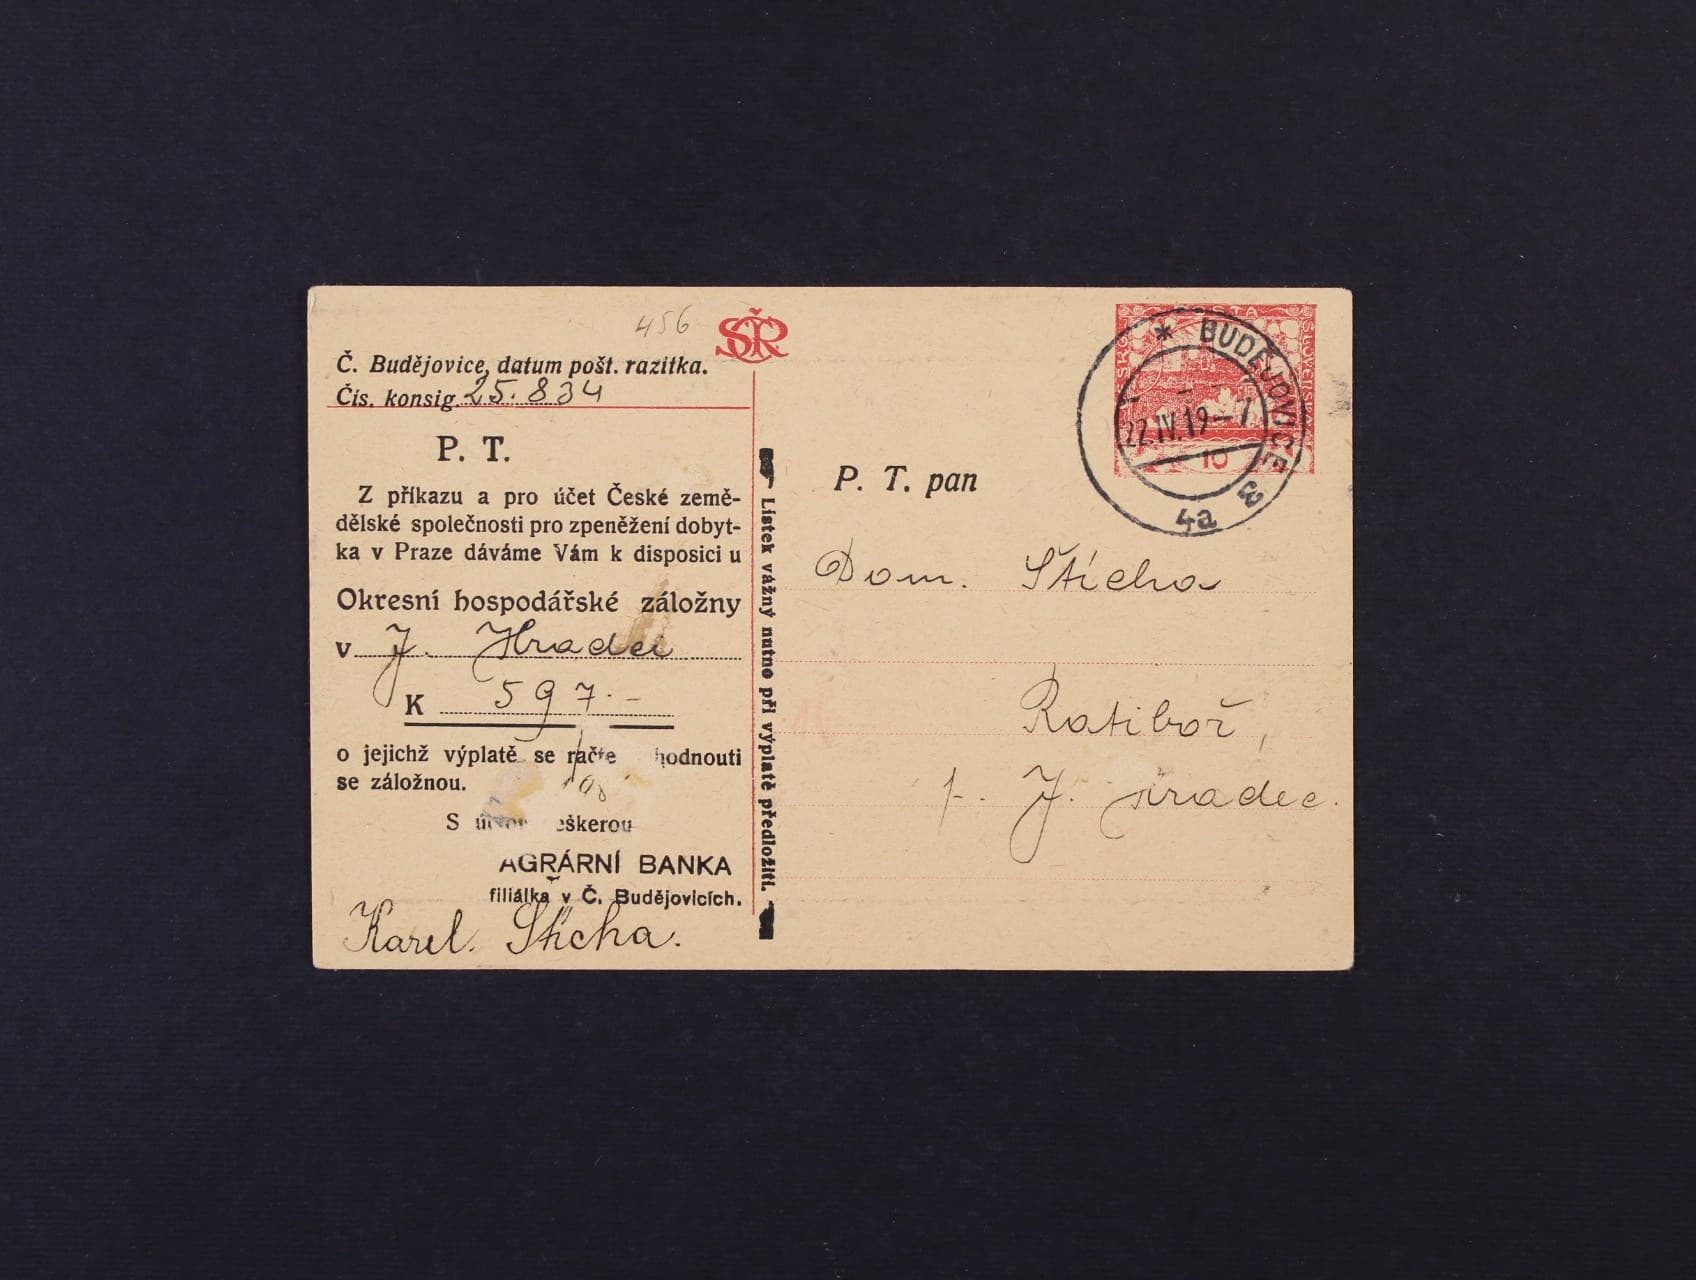 456
SČR
Č. Budějovice, datum pošt. razítka.
Čís. konsig. 25.834
P. T.
Z příkazu a pro účet České země-
dělské společnosti pro zpeněžení dobyt-
ka v Praze dáváme Vám k disposici u
Okresní hospodářské záložny
v J. Hradci
K 597.-
o jejichž výplatě se račte hodnouti
se záložnou.
S eškerou
AGRÁRNÍ BANKA
filiálka v Č. Budějovicích.
Karel Stícha.
Lístek vážný nutno při výplatě předložiti.
* BUDĚJOVICE
22.IV.19-7
4a
10
P. T. pan
Dom. Stícha
16
Ratiboř,
p. J. Hradec.